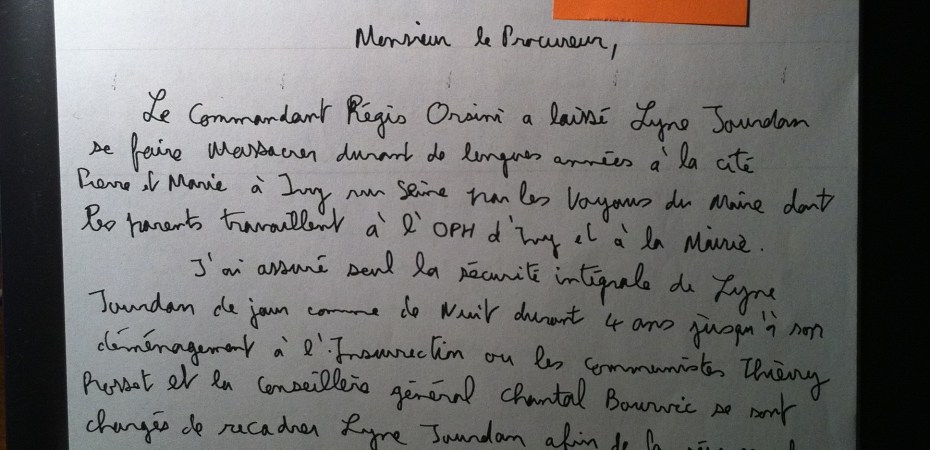 Monsieur le Procureur,
Le Commandant Régis Orsini a laissé Lyne Jourdan
se faire massacrer durant de longues années à la cité
Pierre et Marie à Ivry sur Seine par les Voyous du Maire dont
les parents travaillent à l'OPH d'Ivry et à la Mairie.
J'ai assuré seul la sécurité intégrale de Lyne
Jourdan de jour comme de Nuit durant 4 ans jusqu'à son
déménagement à l'Insurrection ou les communistes Thierry
et la Conseillère général Chantal Bourvic se sont
chargés de recadrer Lyne Jourdan afin de la